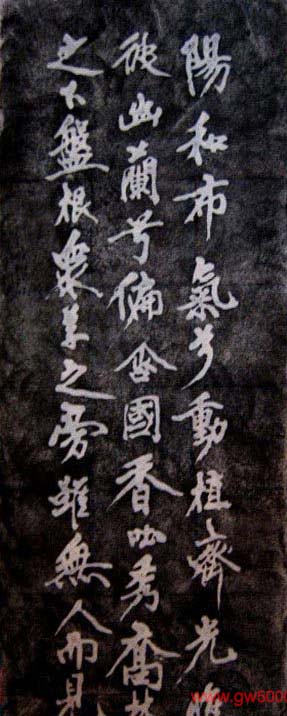 陽和布氣兮動植齊光
彼幽蘭兮偏含國香吐秀喬林
之下盤根衆草之旁雖無人而見
www.gw5000